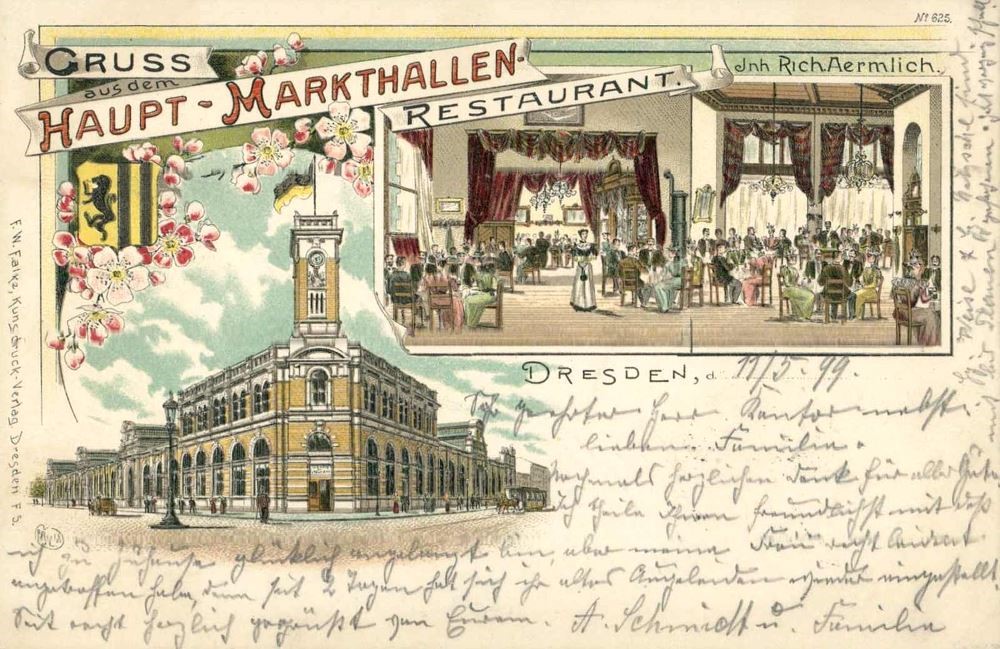 No 625.
GRUSS
aus dem
HAUPT-MARKTHALLEN-
RESTAURANT.
Jnh. Rich. Aermlich.
F. W. Falke, Kunstdruck-Verlag Dresden F 5.
DRESDEN, d. 11/5. 99.
Sehr geehrter Herr Kantor nebst
lieben Familie.
Nochmals herzlichen Dank für alles Gute
Ich theile Ihnen freundlichst mit daß
ich zu Hause glücklich angelangt bin, aber meine Frau recht leidend
angetroffen habe, denn seit 2 Tagen hat sich ihr altes Augenleiden wieder eingestellt
Seit recht herzlich gegrüßt von Eurem A. Schmidt u. Familie